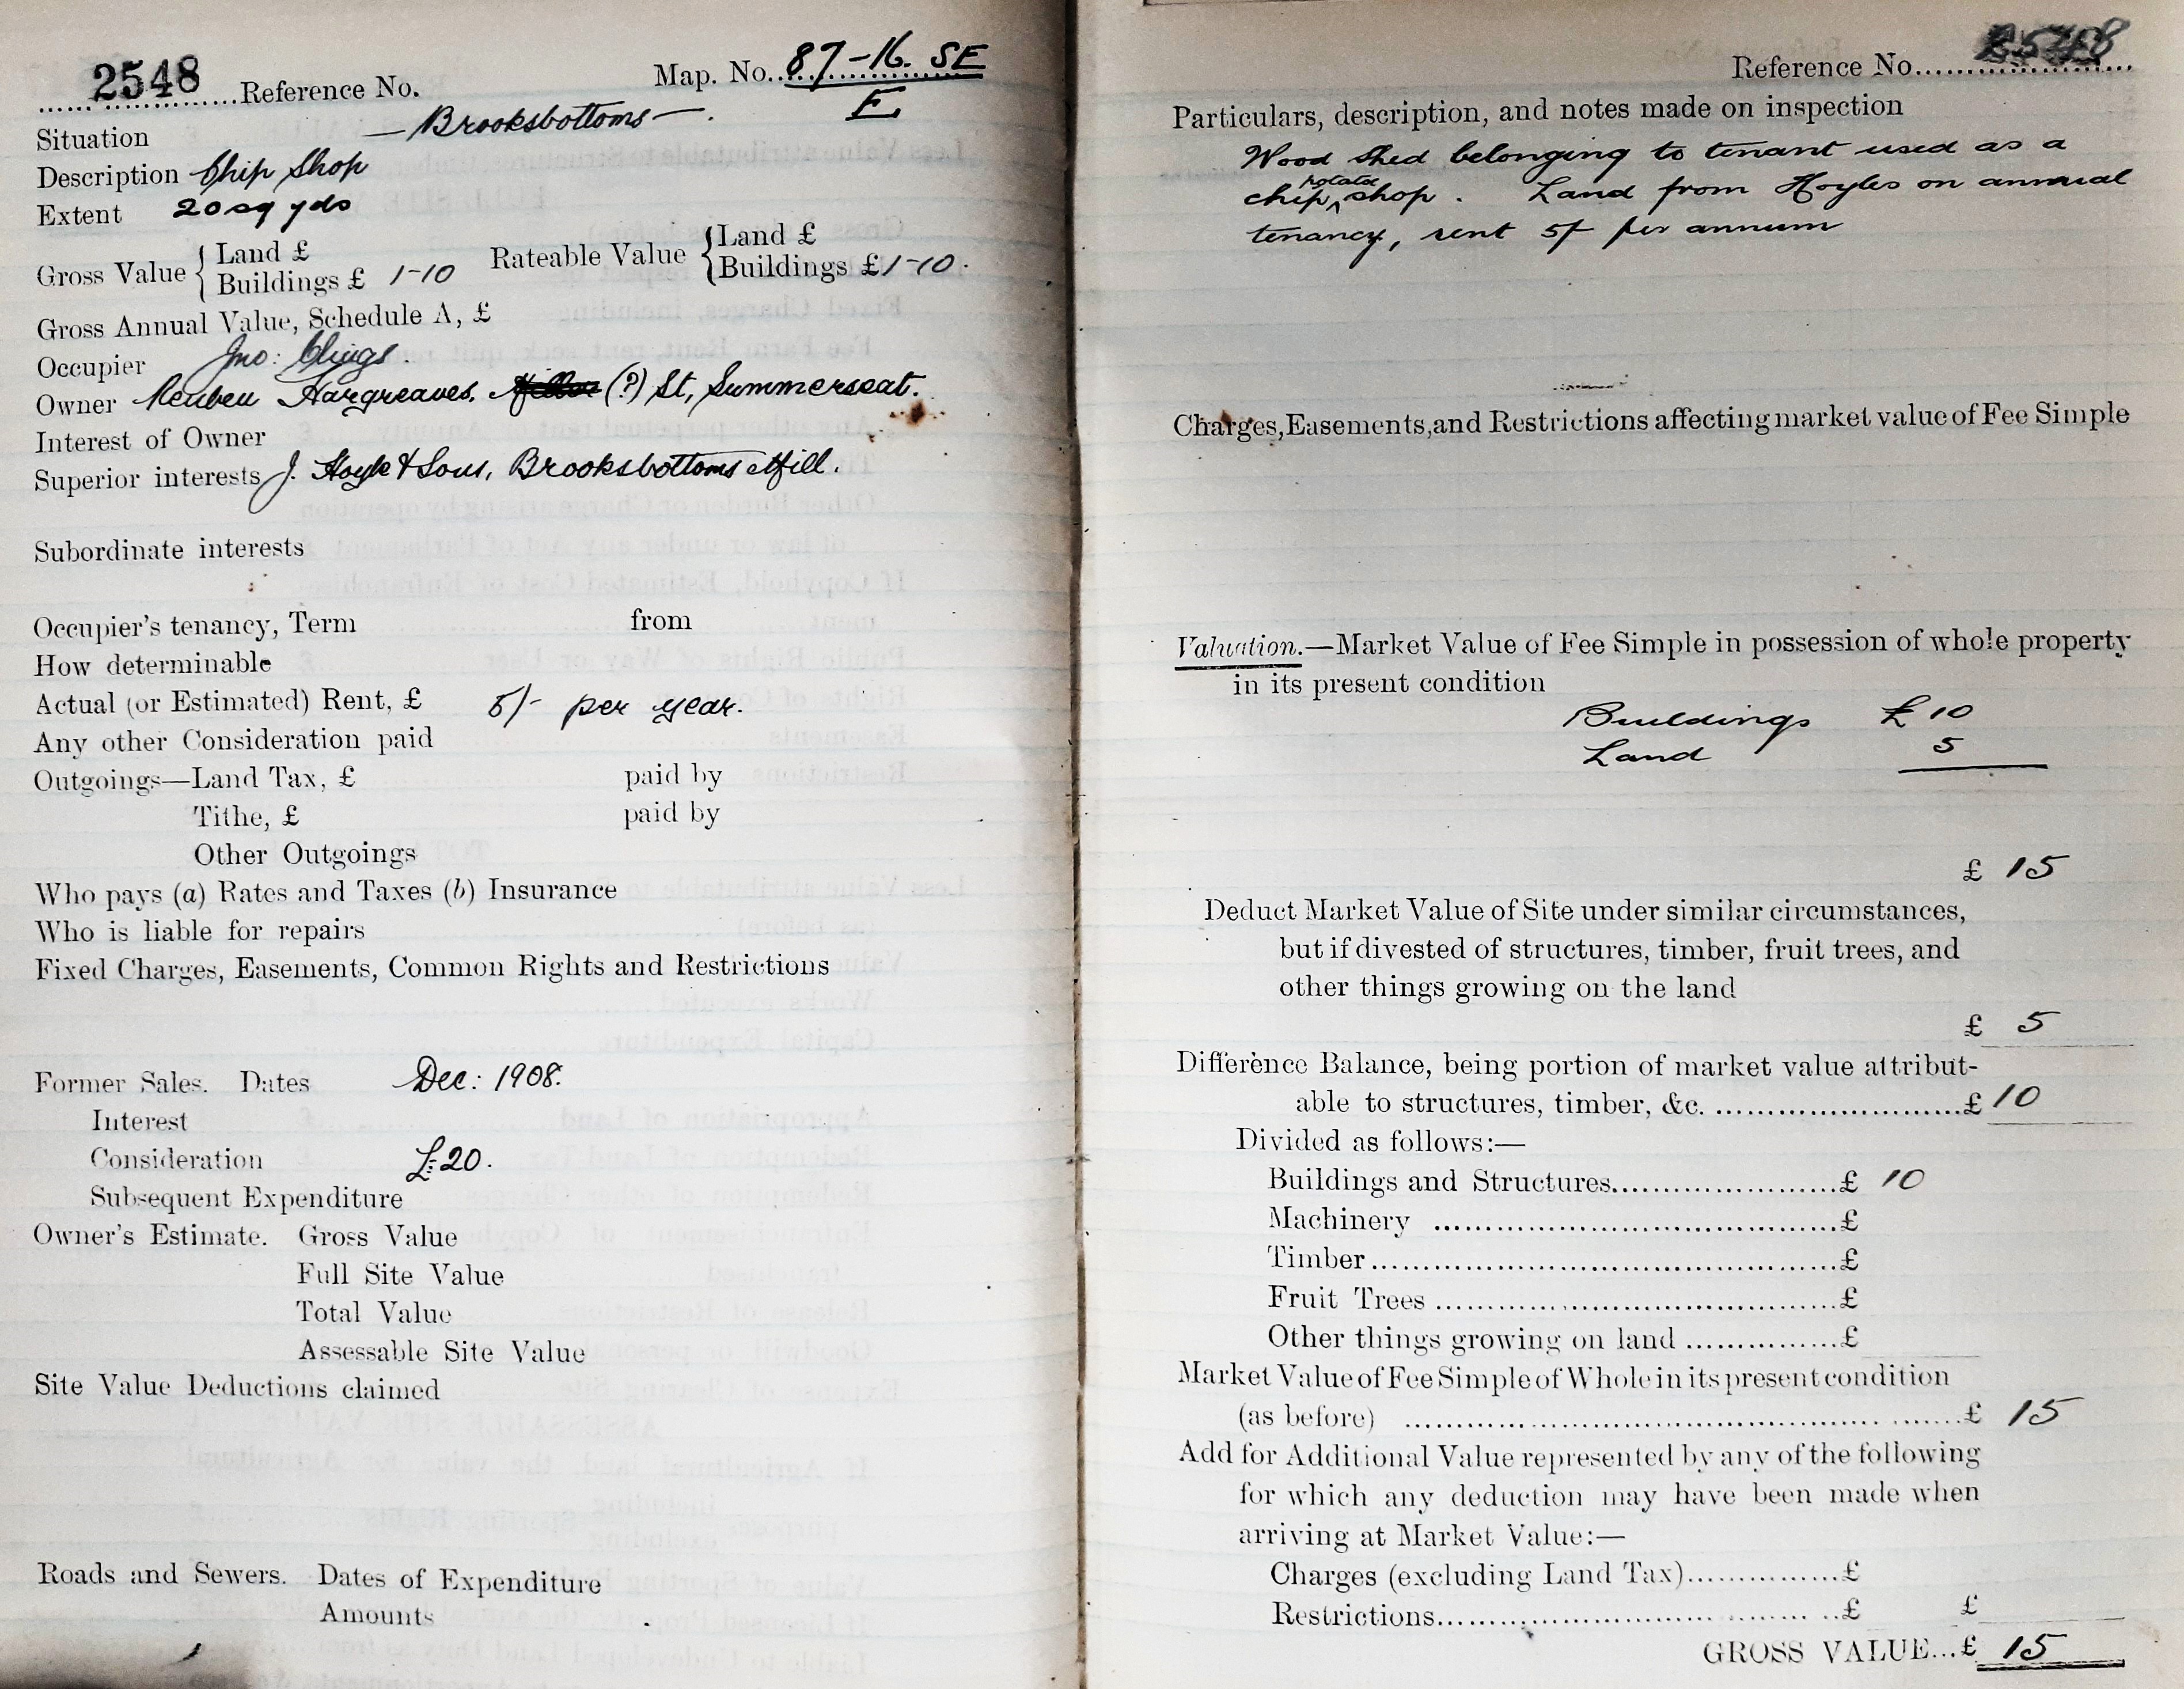 2548 Reference No. Map. No. 87-16. SE
E
Situation — Brooksbottoms — .
Description Chip Shop
Extent 20 sq yds
Gross Value { Land £
Buildings £ 1-10
Rateable Value { Land £
Buildings £ 1-10.
Gross Annual Value, Schedule A, £
Occupier Jno:
Owner Reuben Hargreaves, (?) St, Summerseat.
Interest of Owner
Superior interests J. Hoyle & Sons, Brooksbottoms Mill.
Subordinate interests
Occupier's tenancy, Term from
How determinable
Actual (or Estimated) Rent, £ 5/- per year.
Any other Consideration paid
Outgoings—Land Tax, £ paid by
Tithe, £ paid by
Other Outgoings
Who pays (a) Rates and Taxes (b) Insurance
Who is liable for repairs
Fixed Charges, Easements, Common Rights and Restrictions
Former Sales. Dates Dec: 1908.
Interest
Consideration £:20.
Subsequent Expenditure
Owner's Estimate. Gross Value
Full Site Value
Total Value
Assessable Site Value
Site Value Deductions claimed
Roads and Sewers. Dates of Expenditure
Amounts
Reference No. 2548
Particulars, description, and notes made on inspection
Wood Shed belonging to tenant used as a
chip potato shop. Land from Hoyles on annual
tenancy, rent 5/- per annum
Charges, Easements, and Restrictions affecting market value of Fee Simple
Valuation.—Market Value of Fee Simple in possession of whole property
in its present condition
Buildings £ 10
Land 5
£ 15
Deduct Market Value of Site under similar circumstances,
but if divested of structures, timber, fruit trees, and
other things growing on the land
£ 5
Difference Balance, being portion of market value attribut-
able to structures, timber, &c. ........................£ 10
Divided as follows:—
Buildings and Structures........................£ 10
Machinery ........................£
Timber........................£
Fruit Trees ........................£
Other things growing on land ...............£
Market Value of Fee Simple of Whole in its present condition
(as before) ........................£ 15
Add for Additional Value represented by any of the following
for which any deduction may have been made when
arriving at Market Value:—
Charges (excluding Land Tax)...............£
Restrictions........................£ £
GROSS VALUE...£ 15